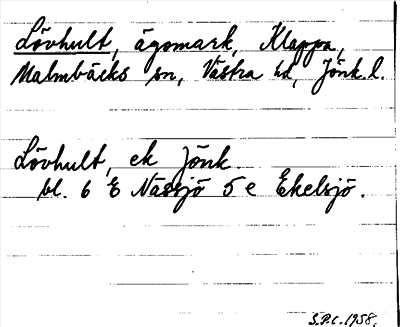 Lövhult, ägomark, Klappa,
Malmbäcks sn, Västra hd, Jönk. l.
Lövhult, ek Jönk.
bl. 6 E Nässjö 5 e Ekelsjö.
S.P.C. 1958.